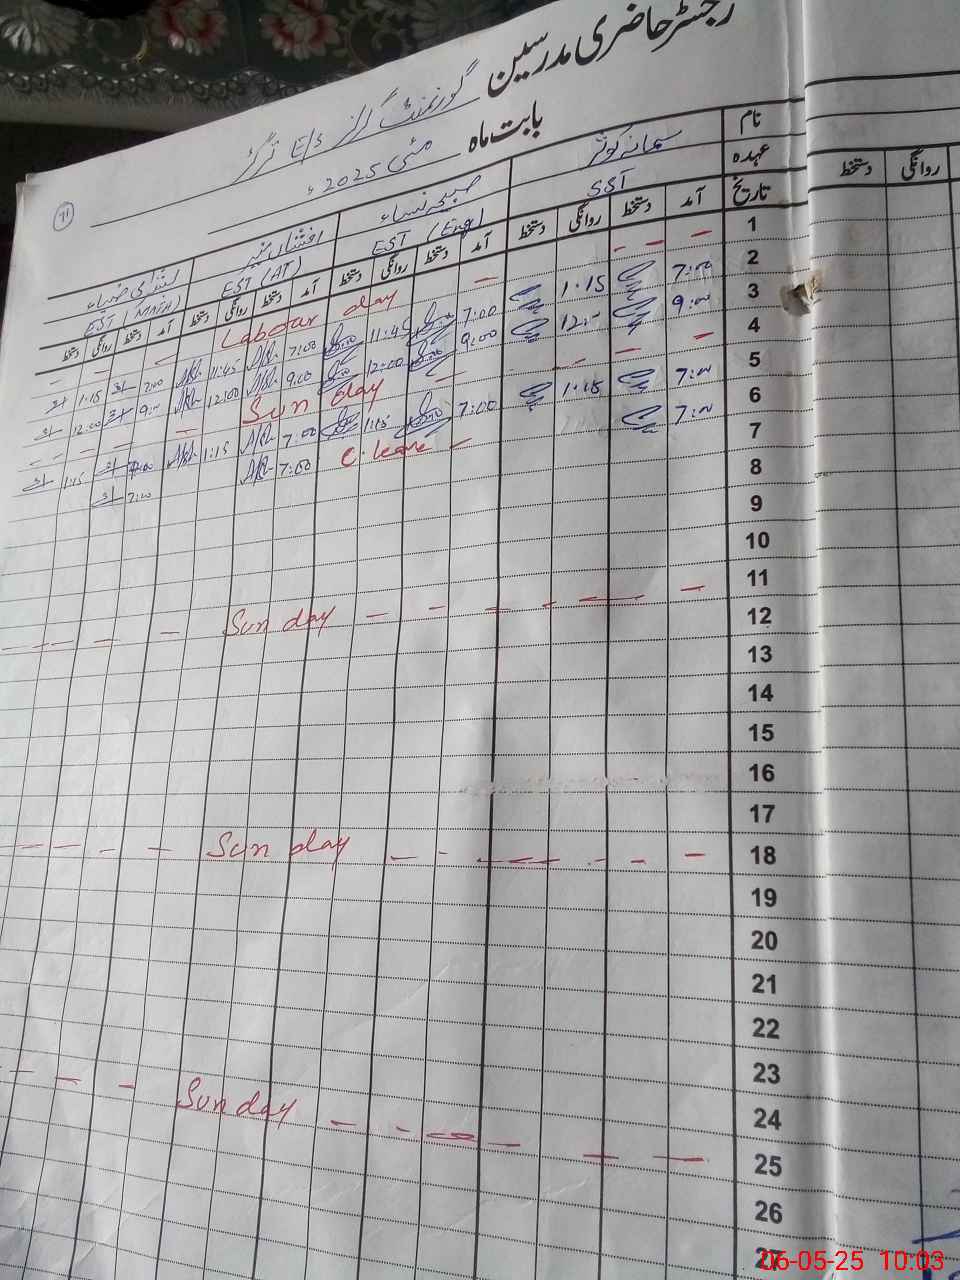 رجسٹر حاضری مدرسین گورنمنٹ گرلز E/S
بابت ماہ مئی 2025ء
11
نام
عہدہ SST EST (Eng) EST (AT) EST (Math)
تاریخ آمد دستخط روانگی دستخط آمد دستخط روانگی دستخط آمد دستخط روانگی دستخط آمد دستخط روانگی دستخط
دستخط روانگی
1 - - - - Labour day - - -
2 7:00 1:15 7:00 11:45 7:00 11:45 7:00 1:15
3 9:00 12:- 9:00 12:00 9:00 12:00 9:00 12:00
4 - - - - Sunday - - -
5 7:00 1:15 7:00 1:15 7:00 1:15 7:00 1:15
6 7:00 - C. leave 7:00 7:00
7
8
9
10
11 - - - - - - Sunday - - - -
12
13
14
15
16
17
18 - - - - - - Sunday - - - -
19
20
21
22
23
24
25 - - - - - - Sunday - - -
26
27
06-05-25 10:03